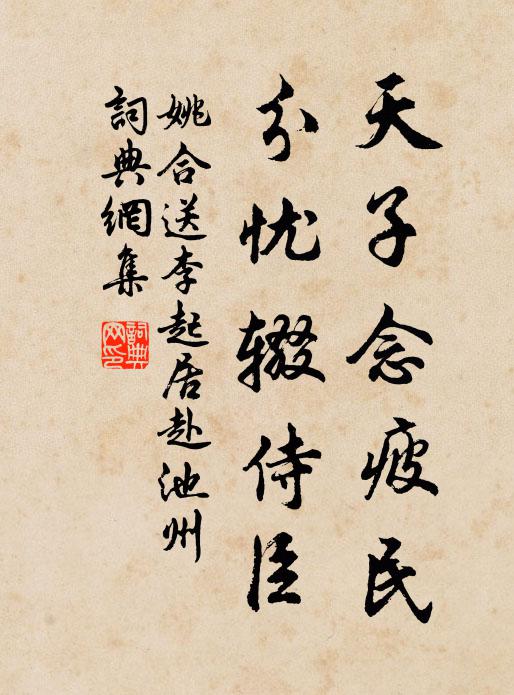 天子念疲民
分忧辍侍臣
姚合送李起居赴池州
詞典網集
詞典網印